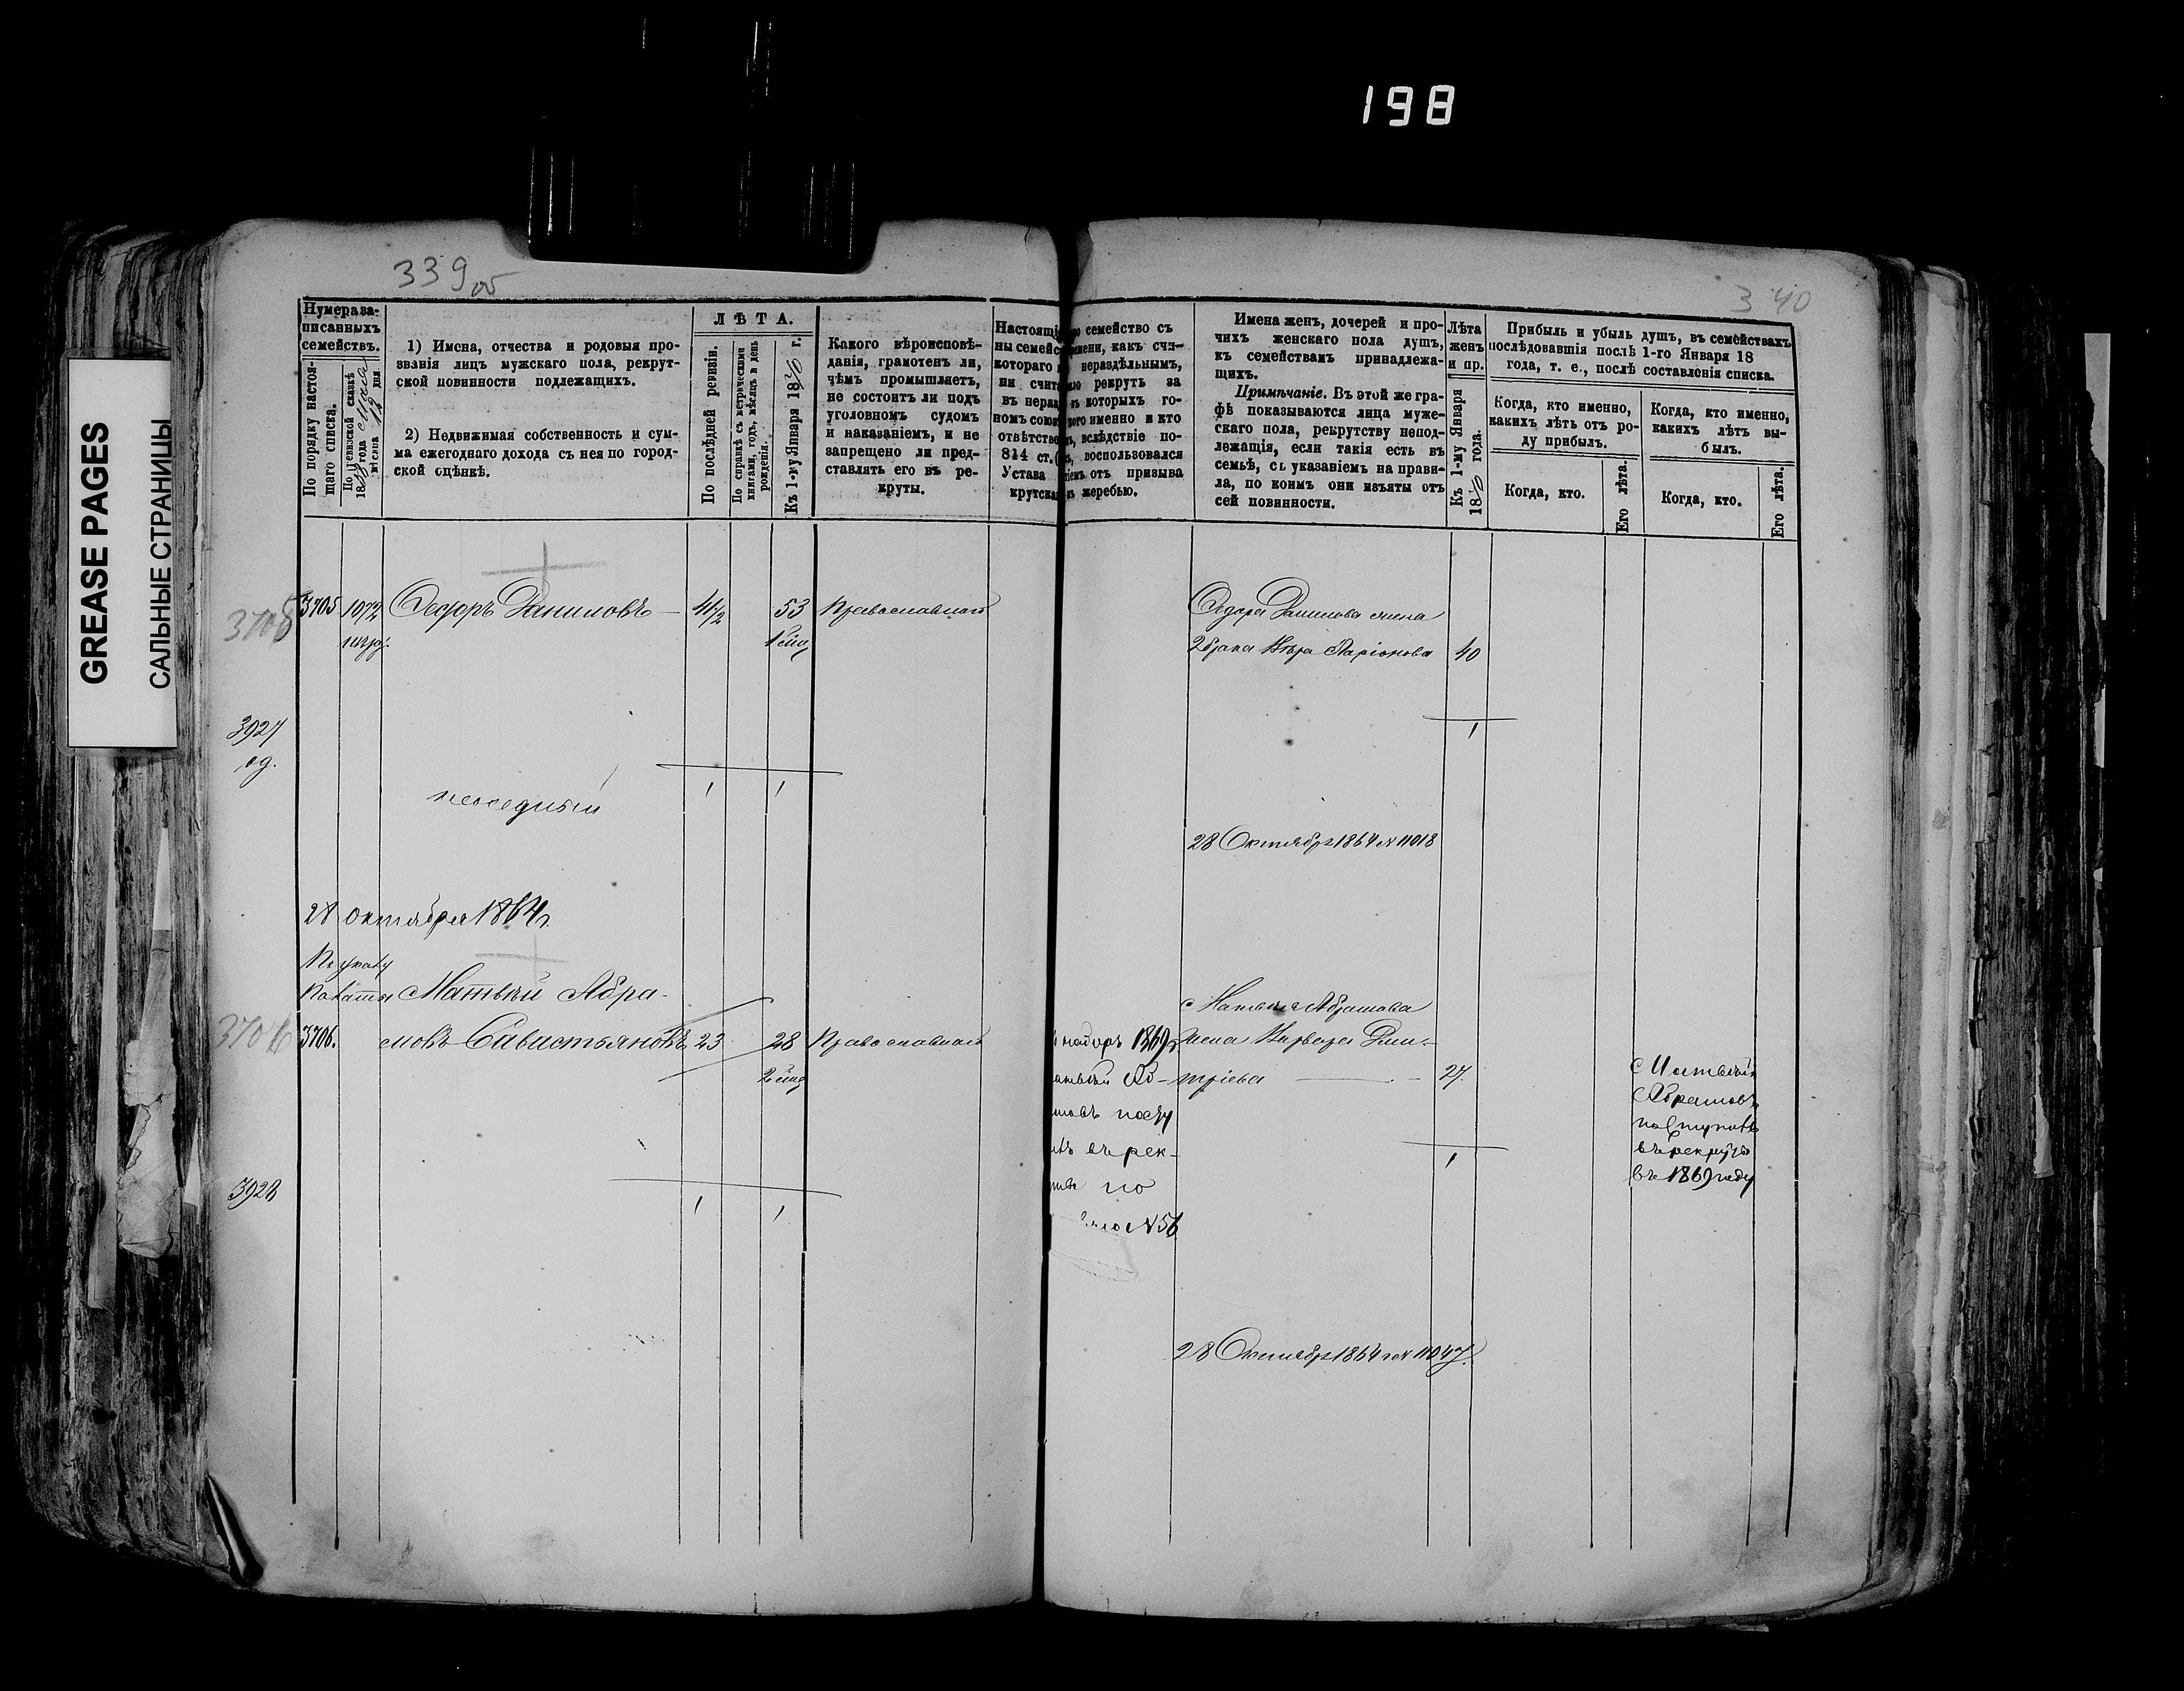 198
GREASE PAGES
САЛЬНЫЕ СТРАНИЦЫ
339 об
340
Нумера за-
писанныхъ
семействъ.
По порядку настоя-
щаго списка.
По ревизской сказкѣ
1858 года
мѣсяца 12 дня
1) Имена, отчества и родовыя про-
званія лицъ мужскаго пола, рекрут-
ской повинности подлежащихъ.
2) Недвижимая собственность и сум-
ма ежегоднаго дохода съ нея по город-
ской оцѣнкѣ.
ЛѢТА.
По послѣдней ревизіи.
По справкѣ съ метрическими
книгами, годъ, мѣсяцъ и день
рожденія.
Къ 1-му Января 1870 г.
Какого вѣроисповѣ-
данія, грамотенъ ли,
чѣмъ промышляетъ,
не состоитъ ли подъ
уголовномъ судомъ
и наказаніемъ, и не
запрещено ли пред-
ставлять его въ ре-
круты.
Настоящі
ны семейс
котораго
ни счит
въ нераз
номъ союз
отвѣтстве
814 ст.
Устава
крутска
семейство съ
мени, какъ счи-
нераздѣльнымъ,
рекрутъ за
которыхъ го-
кого именно и кто
вслѣдствіе по-
воспользовался
іемъ отъ призыва
жеребью.
Имена женъ, дочерей и про-
чихъ женскаго пола душъ,
къ семействамъ принадлежа-
щихъ.
Примѣчаніе. Въ этой же гра-
фѣ показываются лица муже-
скаго пола, рекрутству непод-
лежащія, если такія есть въ
семьѣ, съ указаніемъ на прави-
ла, по коимъ они изъяты отъ
сей повинности.
Лѣта
женъ
и пр.
Къ 1-му Января
1870 года.
Прибыль и убыль душъ, въ семействахъ
послѣдовавшія послѣ 1-го Января 18
года, т. е., послѣ составленія списка.
Когда, кто именно,
какихъ лѣтъ отъ ро-
ду прибылъ.
Когда, кто.
Его лѣта.
Когда, кто именно,
какихъ лѣтъ вы-
былъ.
Когда, кто.
Его лѣта.
3705
3705 1072 Ѳедоръ Даниловъ — 41/2 53 Православнаго
Ѳедора Данилова жена
2 брака Вѣра Ларіонова 40
1
3927
од.
1 1
неоседлый
28 Октября 1864 № 11018
28 октября 1864 г.
По указу
Палаты Матвѣй Абра-
3706
3706. мовъ Савастьяновъ 23 28 Православнаго
Матвѣя Абрамова
наборъ 1869 г. жена Варвара Дми-
тріева — 27.
въ рек-
по
№ 56
Матвѣй
Абрамовъ
поступилъ
въ рекруты
въ 1869 году
1
3928
1 1
28 Октября 1864 г № 11047.